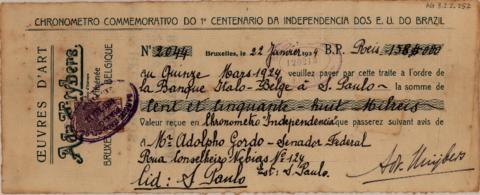 AG 3.2.2.252
CHRONOMETRO COMMEMORATIVO DO 1º CENTENARIO DA INDEPENDENCIA DOS E. U. DO BRAZIL
Nº 2044 Bruxelles, le 22 Janvier 1924 B.P. Reis 158$000
au Quinze Mars 1924 veuillez payer par cette traite à l'ordre de
la Banque Italo-Belge à S. Paulo la somme de
Cent et cinquante huit Milreis
Valeur reçue en Chronometro Independencia que passerez suivant avis de
à Mr Adolpho Gordo - Senador Federal
Rua Conselheiro Nebias Nº 124
Cid: S. Paulo Est: S. Paulo.
Ad. Huybers
ŒUVRES D'ART
Ad. Huybers
BRUXELLES BELGIQUE